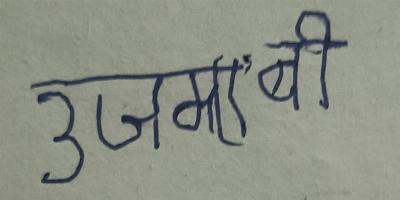 उजमाबी